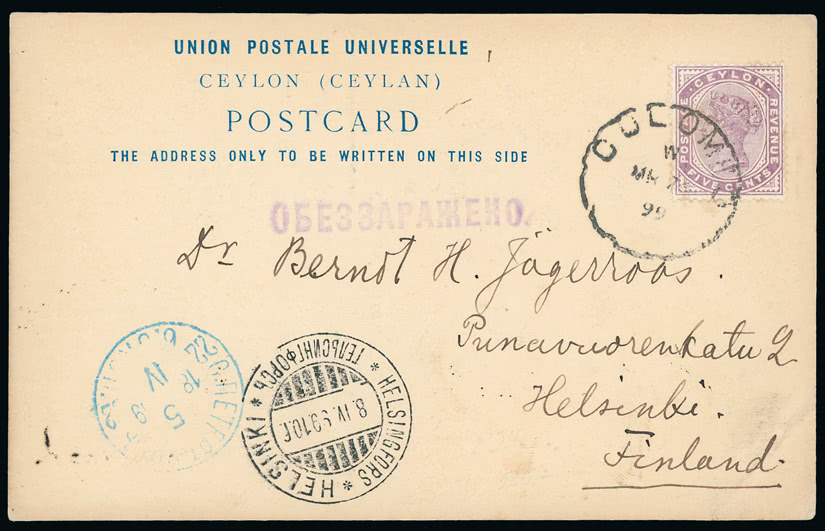 UNION POSTALE UNIVERSELLE
CEYLON (CEYLAN)
POSTCARD
THE ADDRESS ONLY TO BE WRITTEN ON THIS SIDE
CEYLON
POSTAGE
REVENUE
FIVE CENTS
COLOMBO
99
ОБЕЗЗАРАЖЕНО.
Dr Berndt H. Jägerroos.
Punavuorenkatu 2
Helsinki.
Finland.
5
IV
HELSINGFORS * HELSINKI * ГЕЛЬСИНГФОРСЪ *
8.IV.99.10